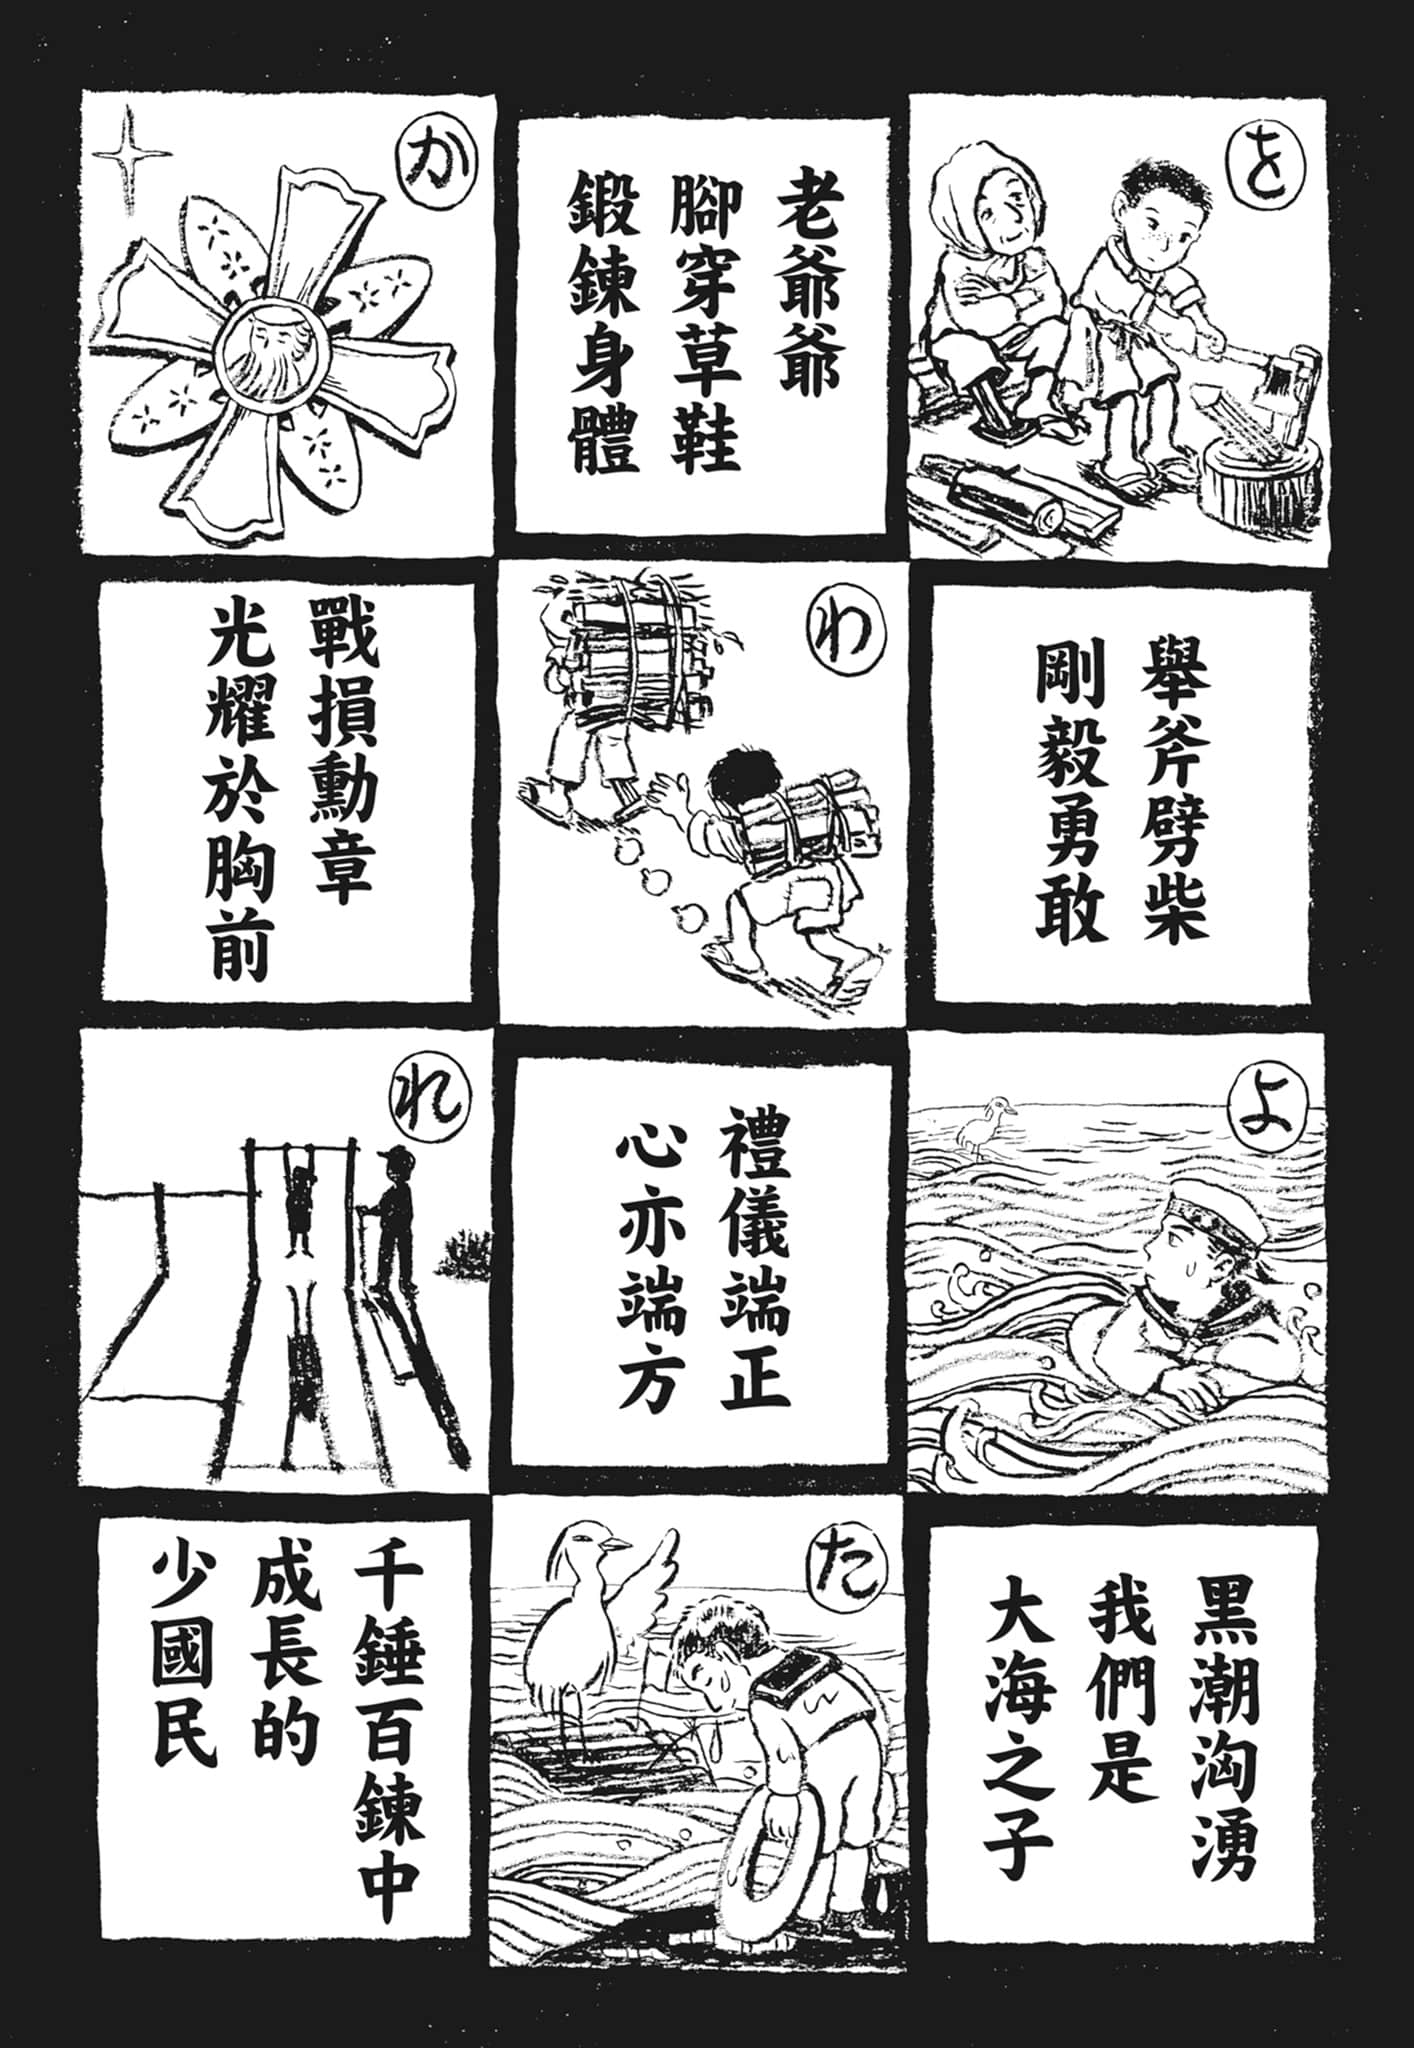 を
舉斧劈柴
剛毅勇敢
老爺爺
腳穿草鞋
鍛鍊身體
わ
か
戰損勳章
光耀於胸前
よ
黑潮洶湧
我們是
大海之子
禮儀端正
心亦端方
た
れ
千錘百鍊中
成長的
少國民